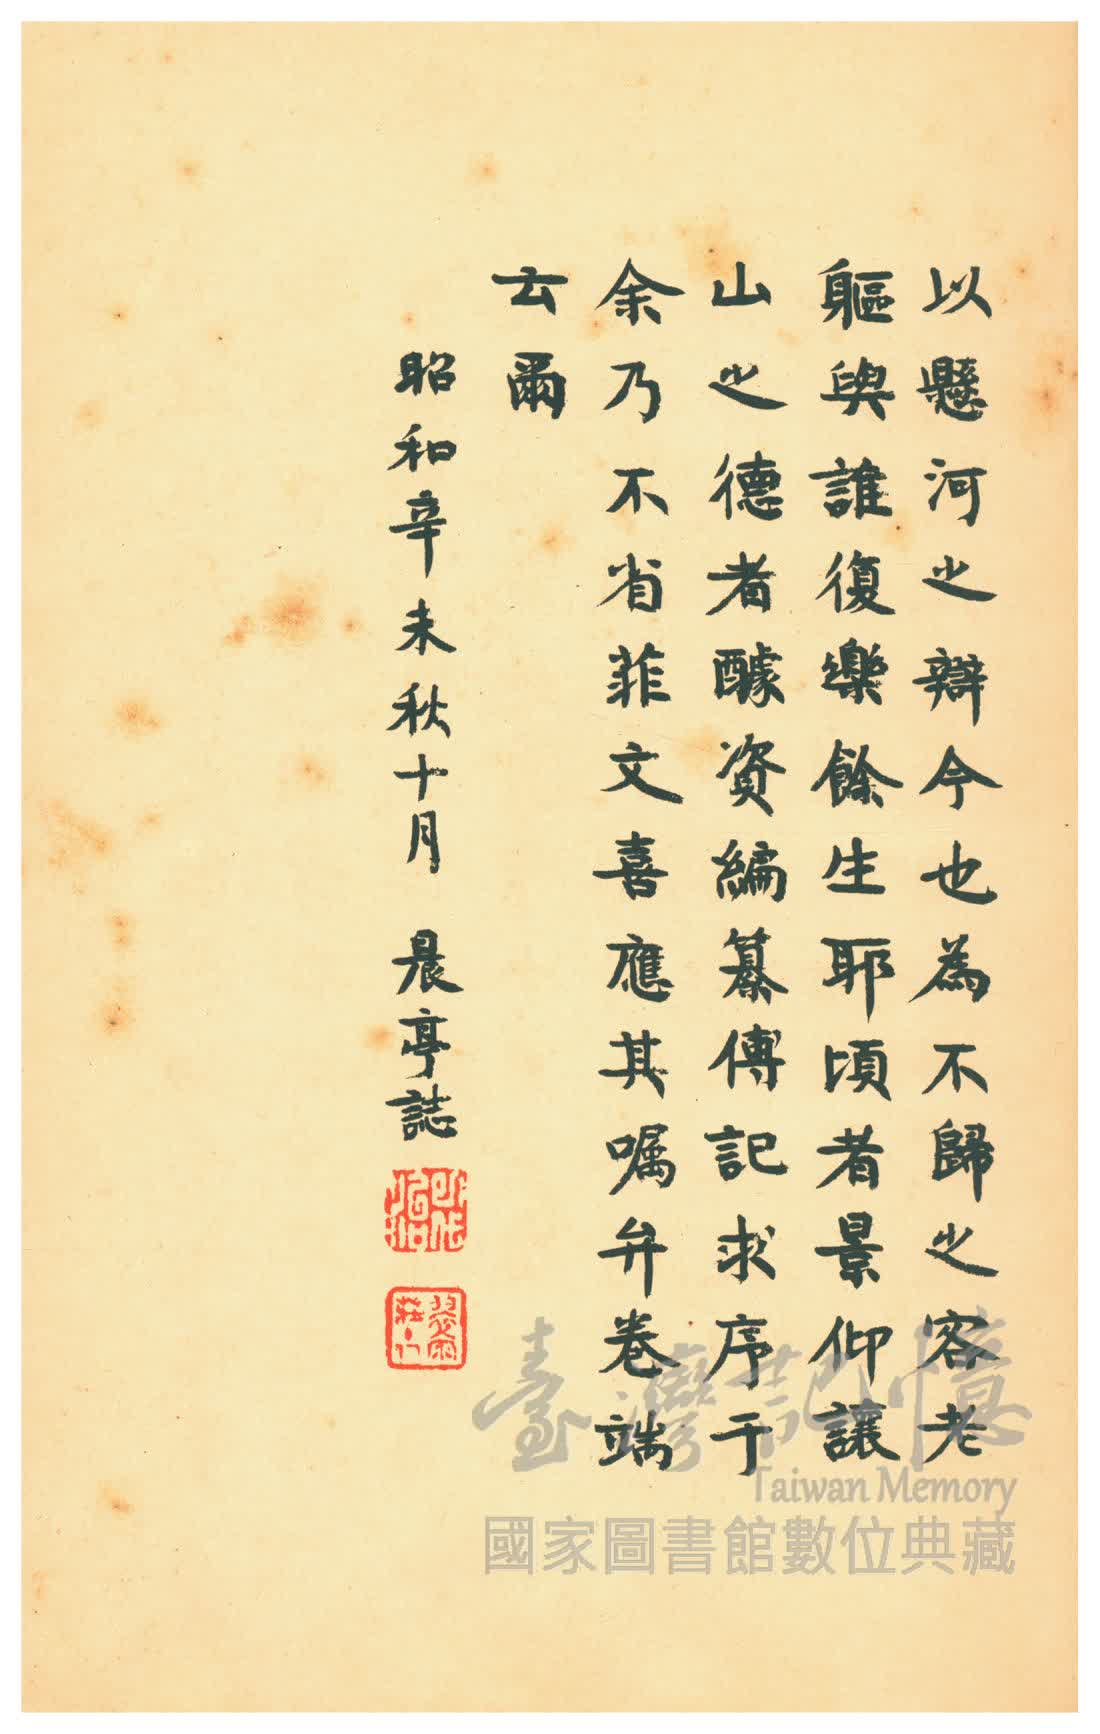 以懸河之辯今也為不歸之客老
軀與誰復樂餘生耶頃者景仰讓
山之德者醵資編纂傳記求序于
余乃不省菲文喜應其嘱弁卷端
云爾
昭和辛未秋十月 晨亭誌
臺灣記憶
Taiwan Memory
國家圖書館數位典藏